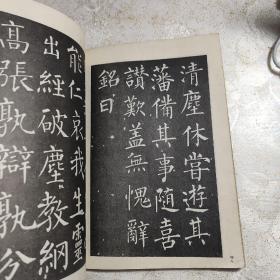 清塵休嘗遊其
藩備其事隨喜
讃歎蓋無愧辭
銘曰
能仁哀我生靈
出經破塵教網
高張孰辯孰分